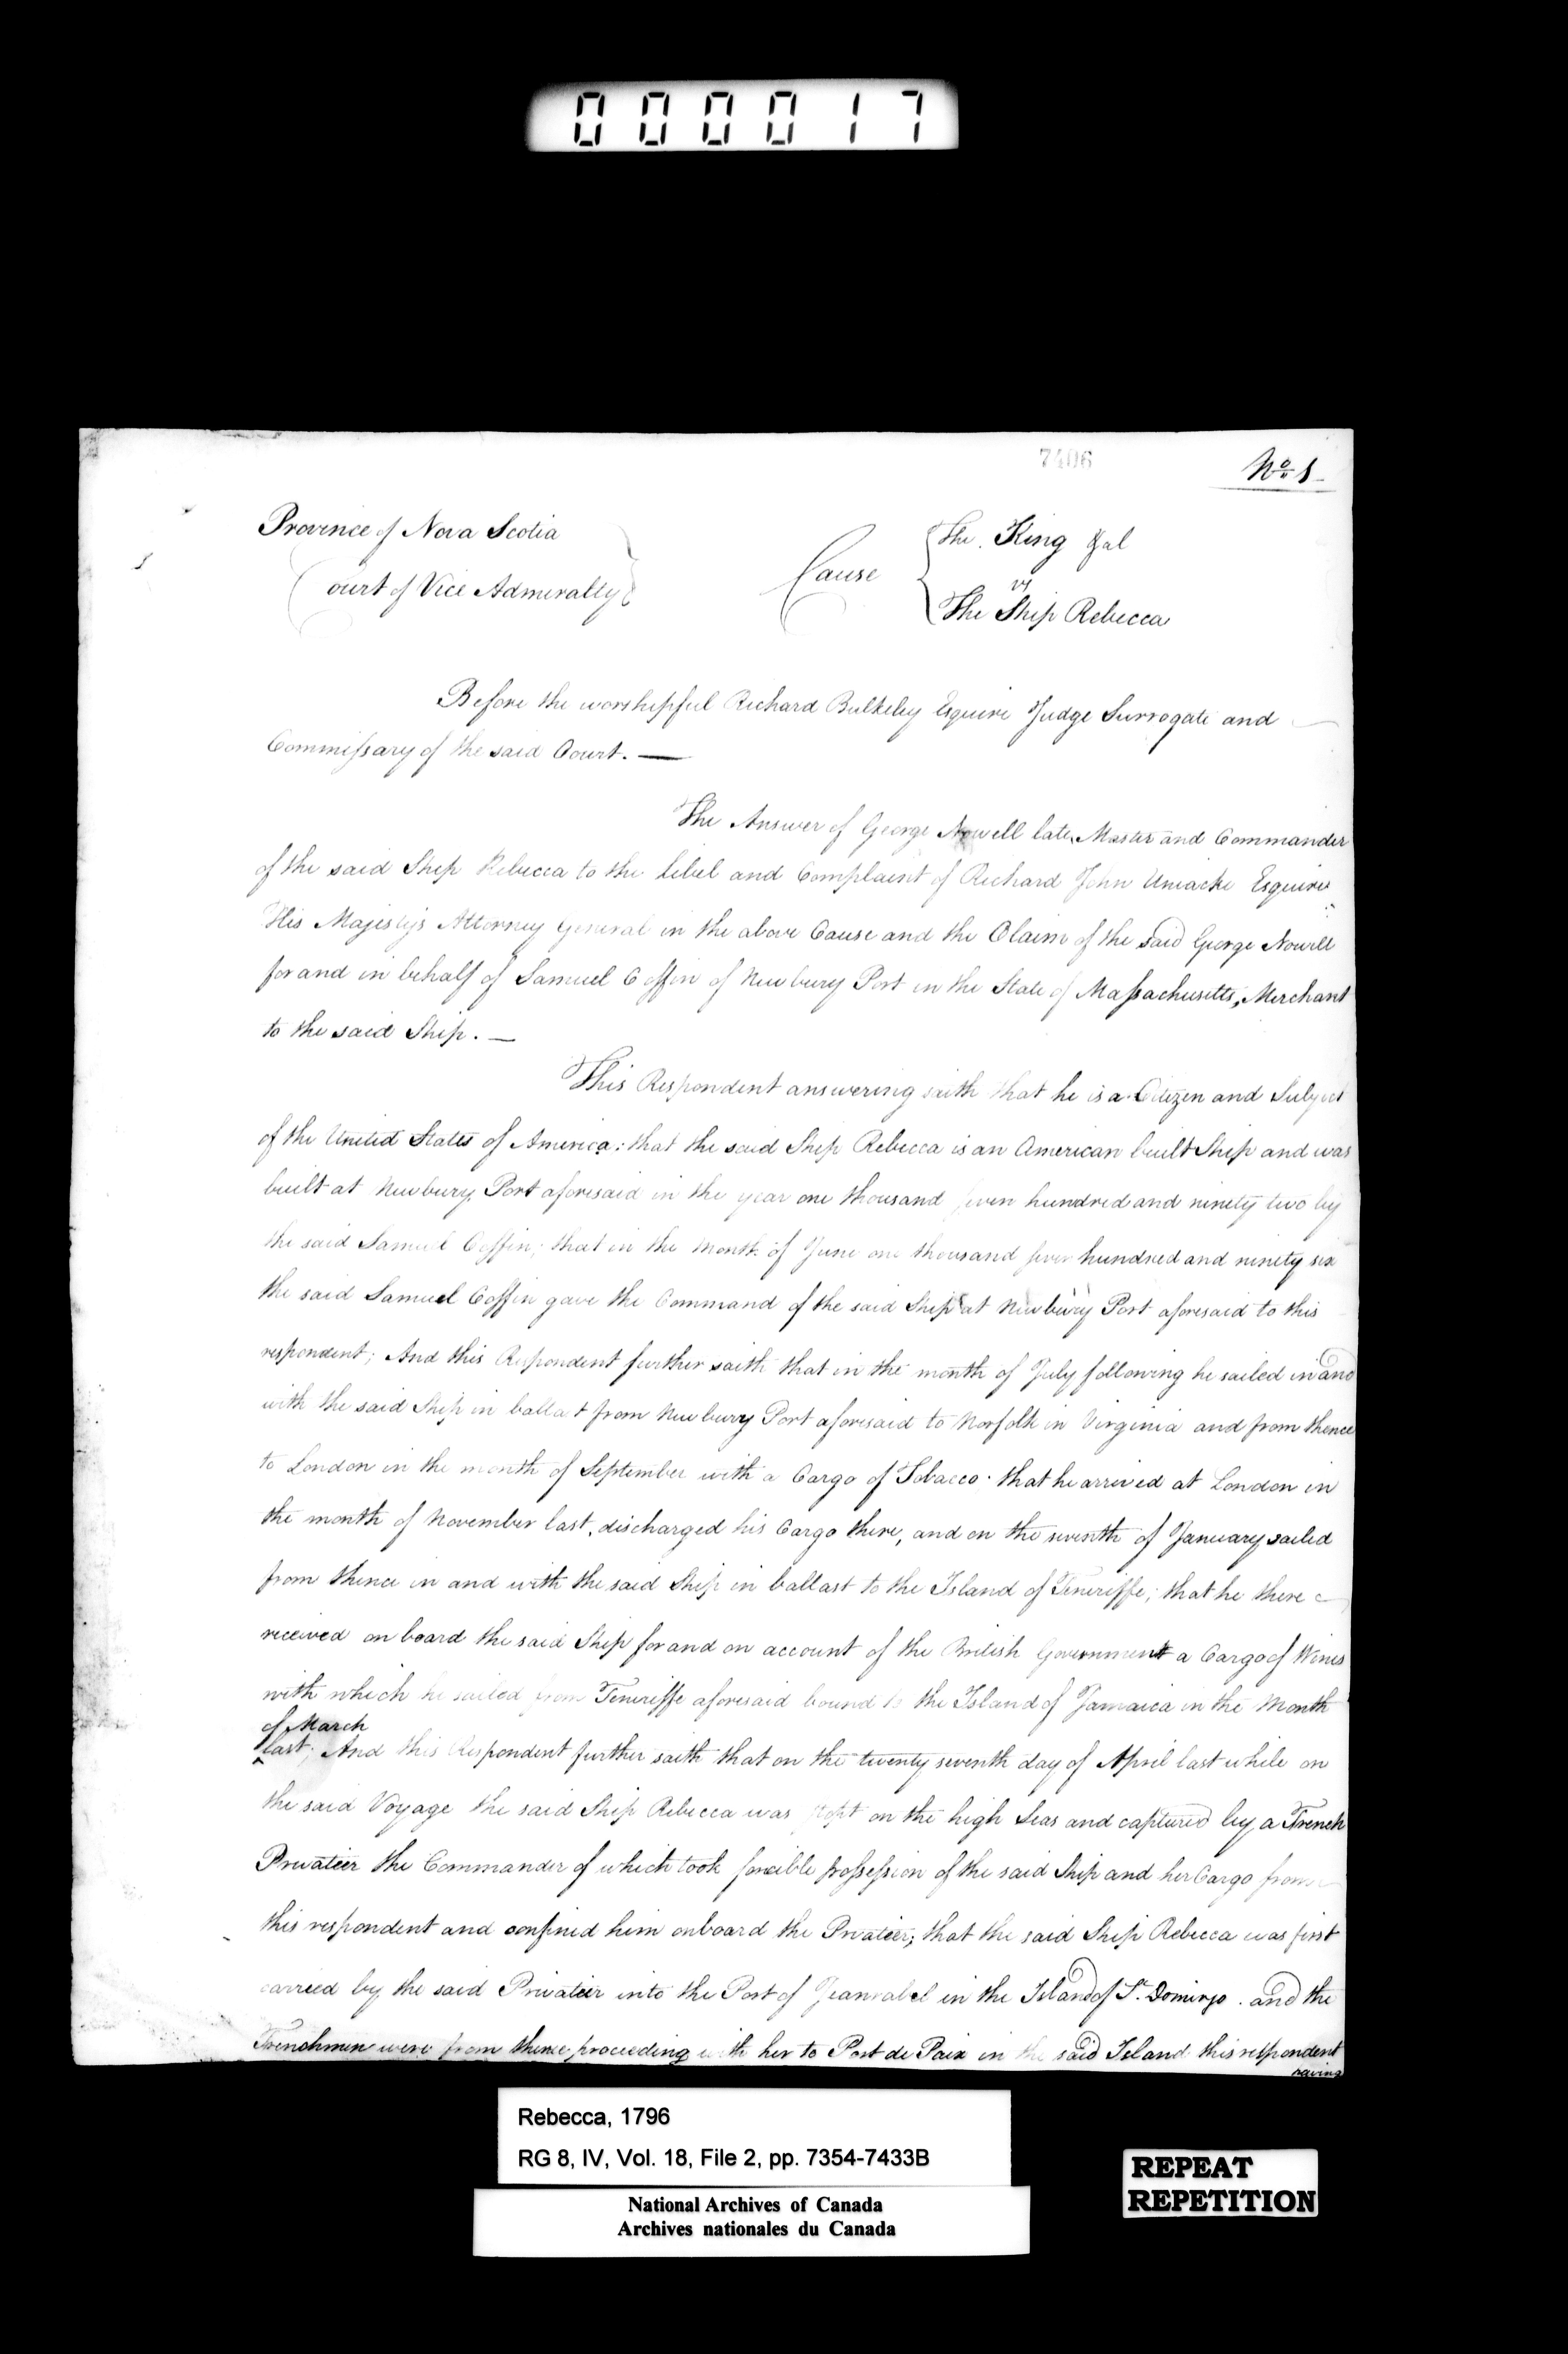 000017
7406
No. 1
Province of Nova Scotia
Court of Vice Admiralty
Cause
The King &al
vs
The Ship Rebecca
Before the worshipful Richard Bulkeley Esquire Judge Surrogate and
Commissary of the said Court. —
The Answer of George Nowell late Master and Commander
of the said Ship Rebecca to the libel and Complaint of Richard John Uniacke Esquire
His Majesty's Attorney General in the above Cause and the Claim of the said George Nowell
for and in behalf of Samuel Coffin of Newbury Port in the State of Massachusetts, Merchant
to the said Ship. —
This Respondent answering saith that he is a Citizen and Subject
of the United States of America: that the said Ship Rebecca is an American built Ship and was
built at Newbury Port aforesaid in the year one thousand seven hundred and ninety two by
the said Samuel Coffin; that in the Month of June one thousand seven hundred and ninety six
the said Samuel Coffin gave the Command of the said Ship at Newbury Port aforesaid to this
respondent; And this Respondent further saith that in the month of July following he sailed in and
with the said Ship in ballast from Newbury Port aforesaid to Norfolk in Virginia and from thence
to London in the month of September with a Cargo of Tobacco. that he arrived at London in
the month of November last, discharged his Cargo there, and on the seventh of January sailed
from thence in and with the said Ship in ballast to the Island of Teneriffe; that he there
received on board the said Ship for and on account of the British Government a Cargo of Wines
with which he sailed from Teneriffe aforesaid bound to the Island of Jamaica in the Month
of March
last; And this Respondent further saith that on the twenty seventh day of April last while on
the said Voyage the said Ship Rebecca was stopt on the high Seas and captured by a French
Privateer the Commander of which took forcible possession of the said Ship and her Cargo from
this respondent and confined him onboard the Privateer; that the said Ship Rebecca was first
carried by the said Privateer into the Port of Jeanrabel in the Island of St. Domingo. and the
Frenchmen were from thence proceeding with her to Port de Paix in the said Island this respondent
having
Rebecca, 1796
RG 8, IV, Vol. 18, File 2, pp. 7354-7433B
National Archives of Canada
Archives nationales du Canada
REPEAT
REPETITION